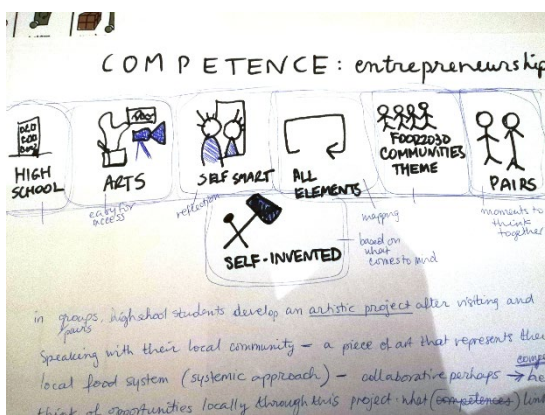 COMPETENCE: entrepreneurship
HIGH SCHOOL
ARTS
SELF SMART
ALL ELEMENTS
FOOD2030 COMMUNITIES THEME
PAIRS
easy for access
reflection
mapping
moments to think together
SELF-INVENTED
based on what comes to mind
in groups, highschool students develop an artistic project after visiting and
pairs
speaking with their local community – a piece of art that represents
local food system (systemic approach) – collaborative perhaps →
think of opportunities locally through this project: what (competences)